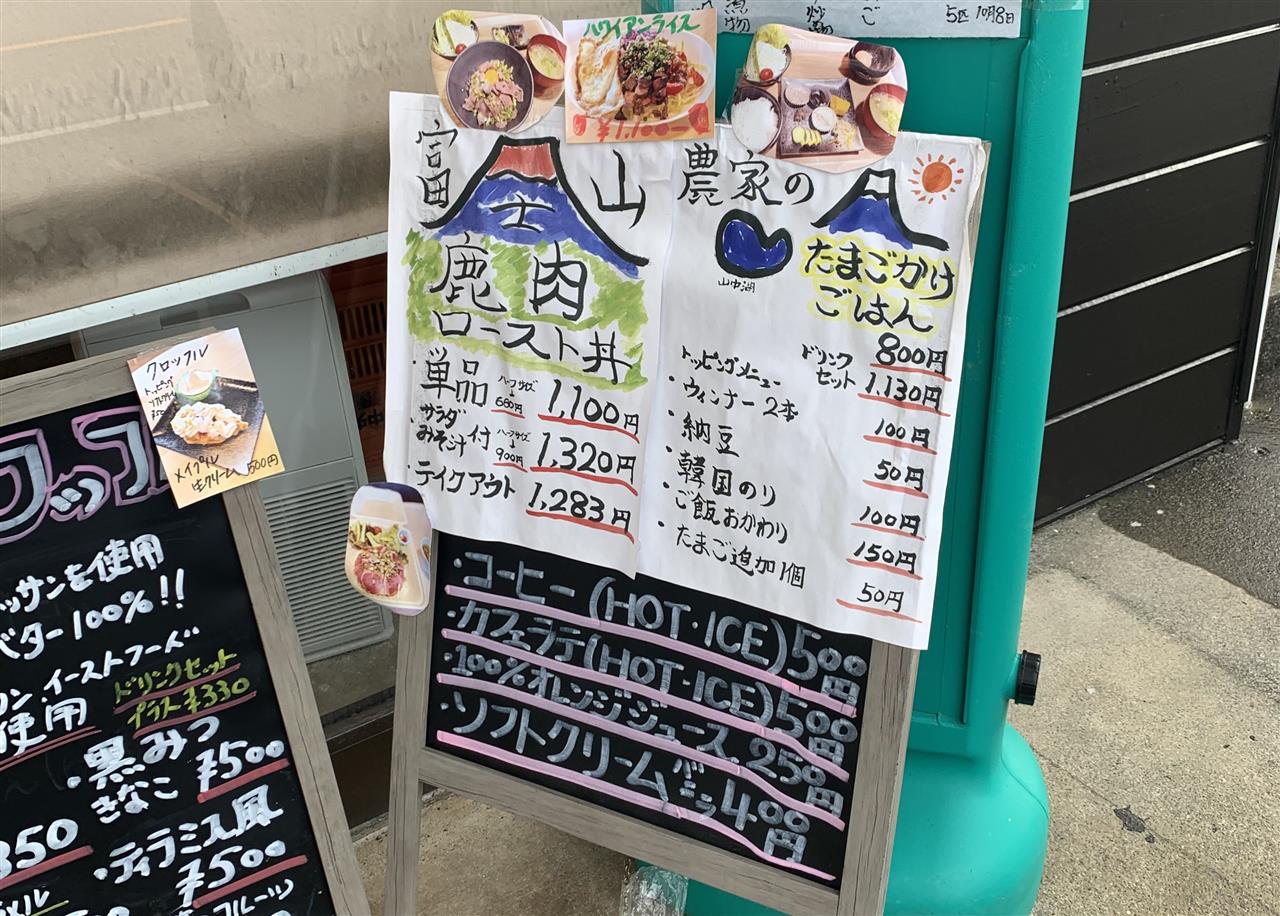 5匹 10月8日
ハワイアンライス
¥1,100-
富士山
鹿肉
ロースト丼
・単品 ハーフサイズ 680円 1,100円
・サラダ
みそ汁付 ハーフサイズ 900円 1,320円
・テイクアウト 1,283円
農家の
山中湖
たまごかけ
ごはん
800円
ドリンク
セット 1,130円
トッピングメニュー
・ウィンナー2本 100円
・納豆 50円
・韓国のり 100円
・ご飯おかわり 150円
・たまご追加1個 50円
・コーヒー(HOT・ICE)500円
・カフェラテ(HOT・ICE)500円
・100%オレンジジュース 250円
・ソフトクリーム バニラ 400円
クロッフル
トッピング
ソフトクリーム
メイプル
生クリーム 500円
ッサンを使用
バター100%!!
イーストフード
使用
ドリンクセット
プラス¥330
・黒みつ
きなこ ¥500
850
・ティラミス風
¥500
フルーツ